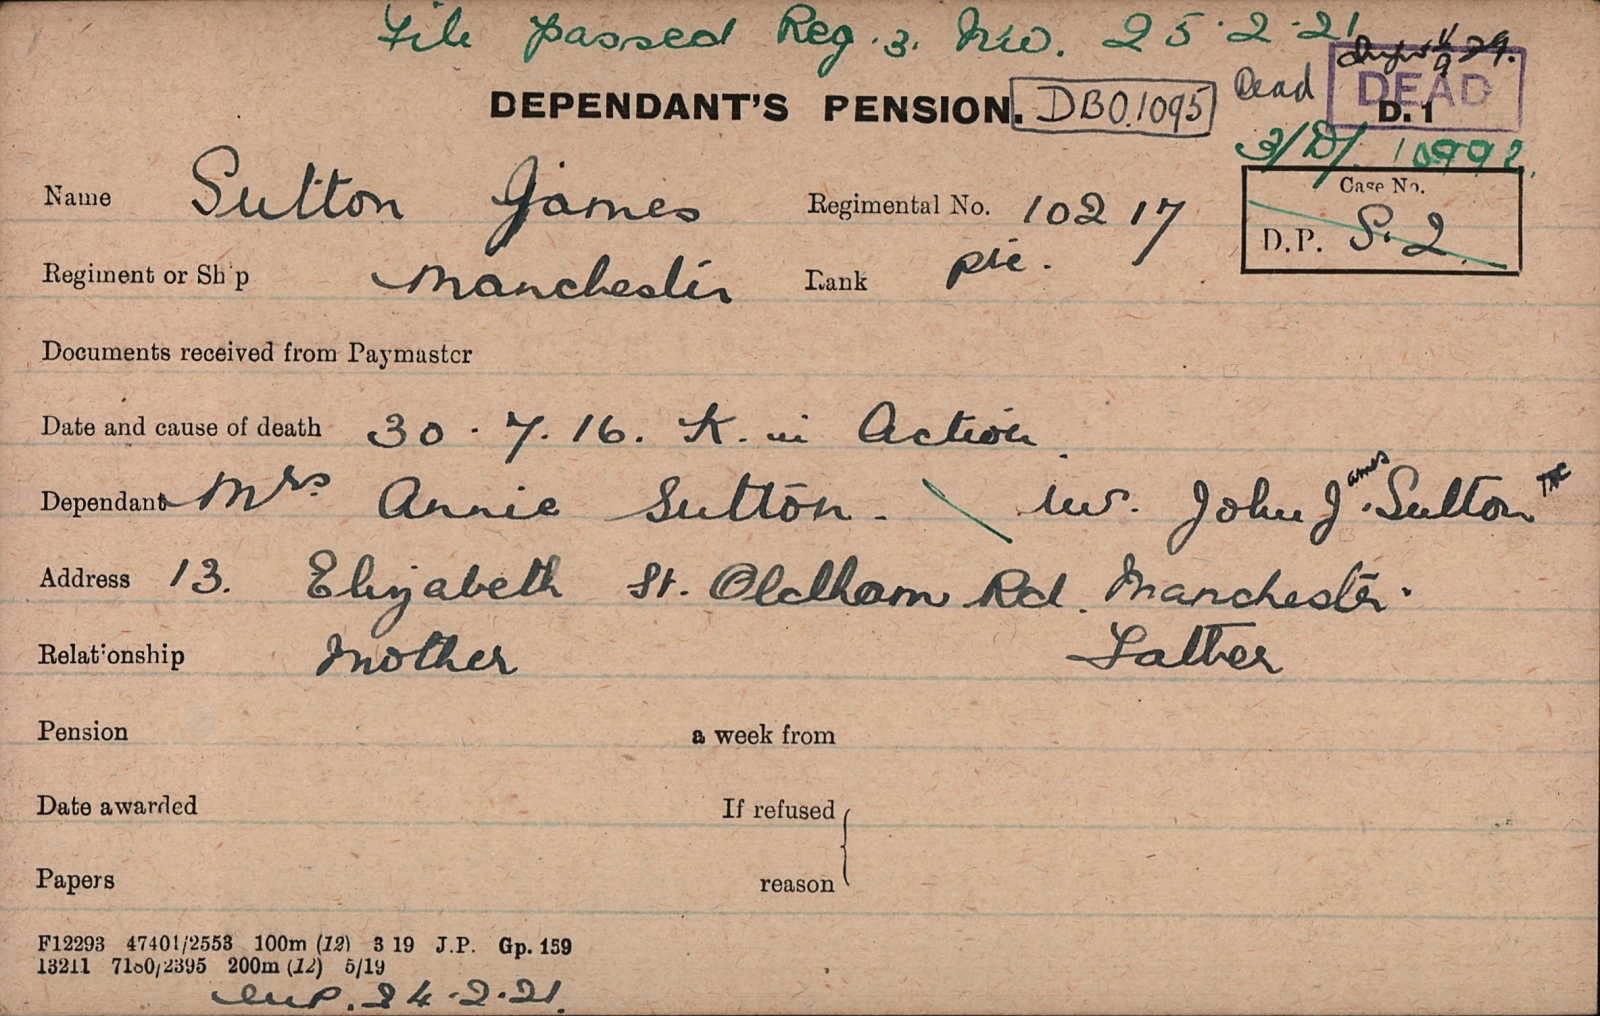 File passed Reg. 3. NW. 25.2.21
4/9 29.
DEPENDANT'S PENSION. DBO.1095 Dead DEAD
D. 1
3/D/. 10992
Name Sutton James Regimental No. 10217
Case No.
D.P. S.2.
Regiment or Ship Manchester Rank pte.
Documents received from Paymaster
Date and cause of death 30.7.16. K. in Action
Dependant Mrs Annie Sutton. \ Mr. John James Sutton
Address 13. Elizabeth St. Oldham Rd. Manchester.
Relationship Mother Father
Pension a week from
Date awarded If refused
Papers reason
F12293 47401/2553 100m (12) 3 19 J.P. Gp. 159
13211 7180/2395 200m (12) 5/19
24.2.21.